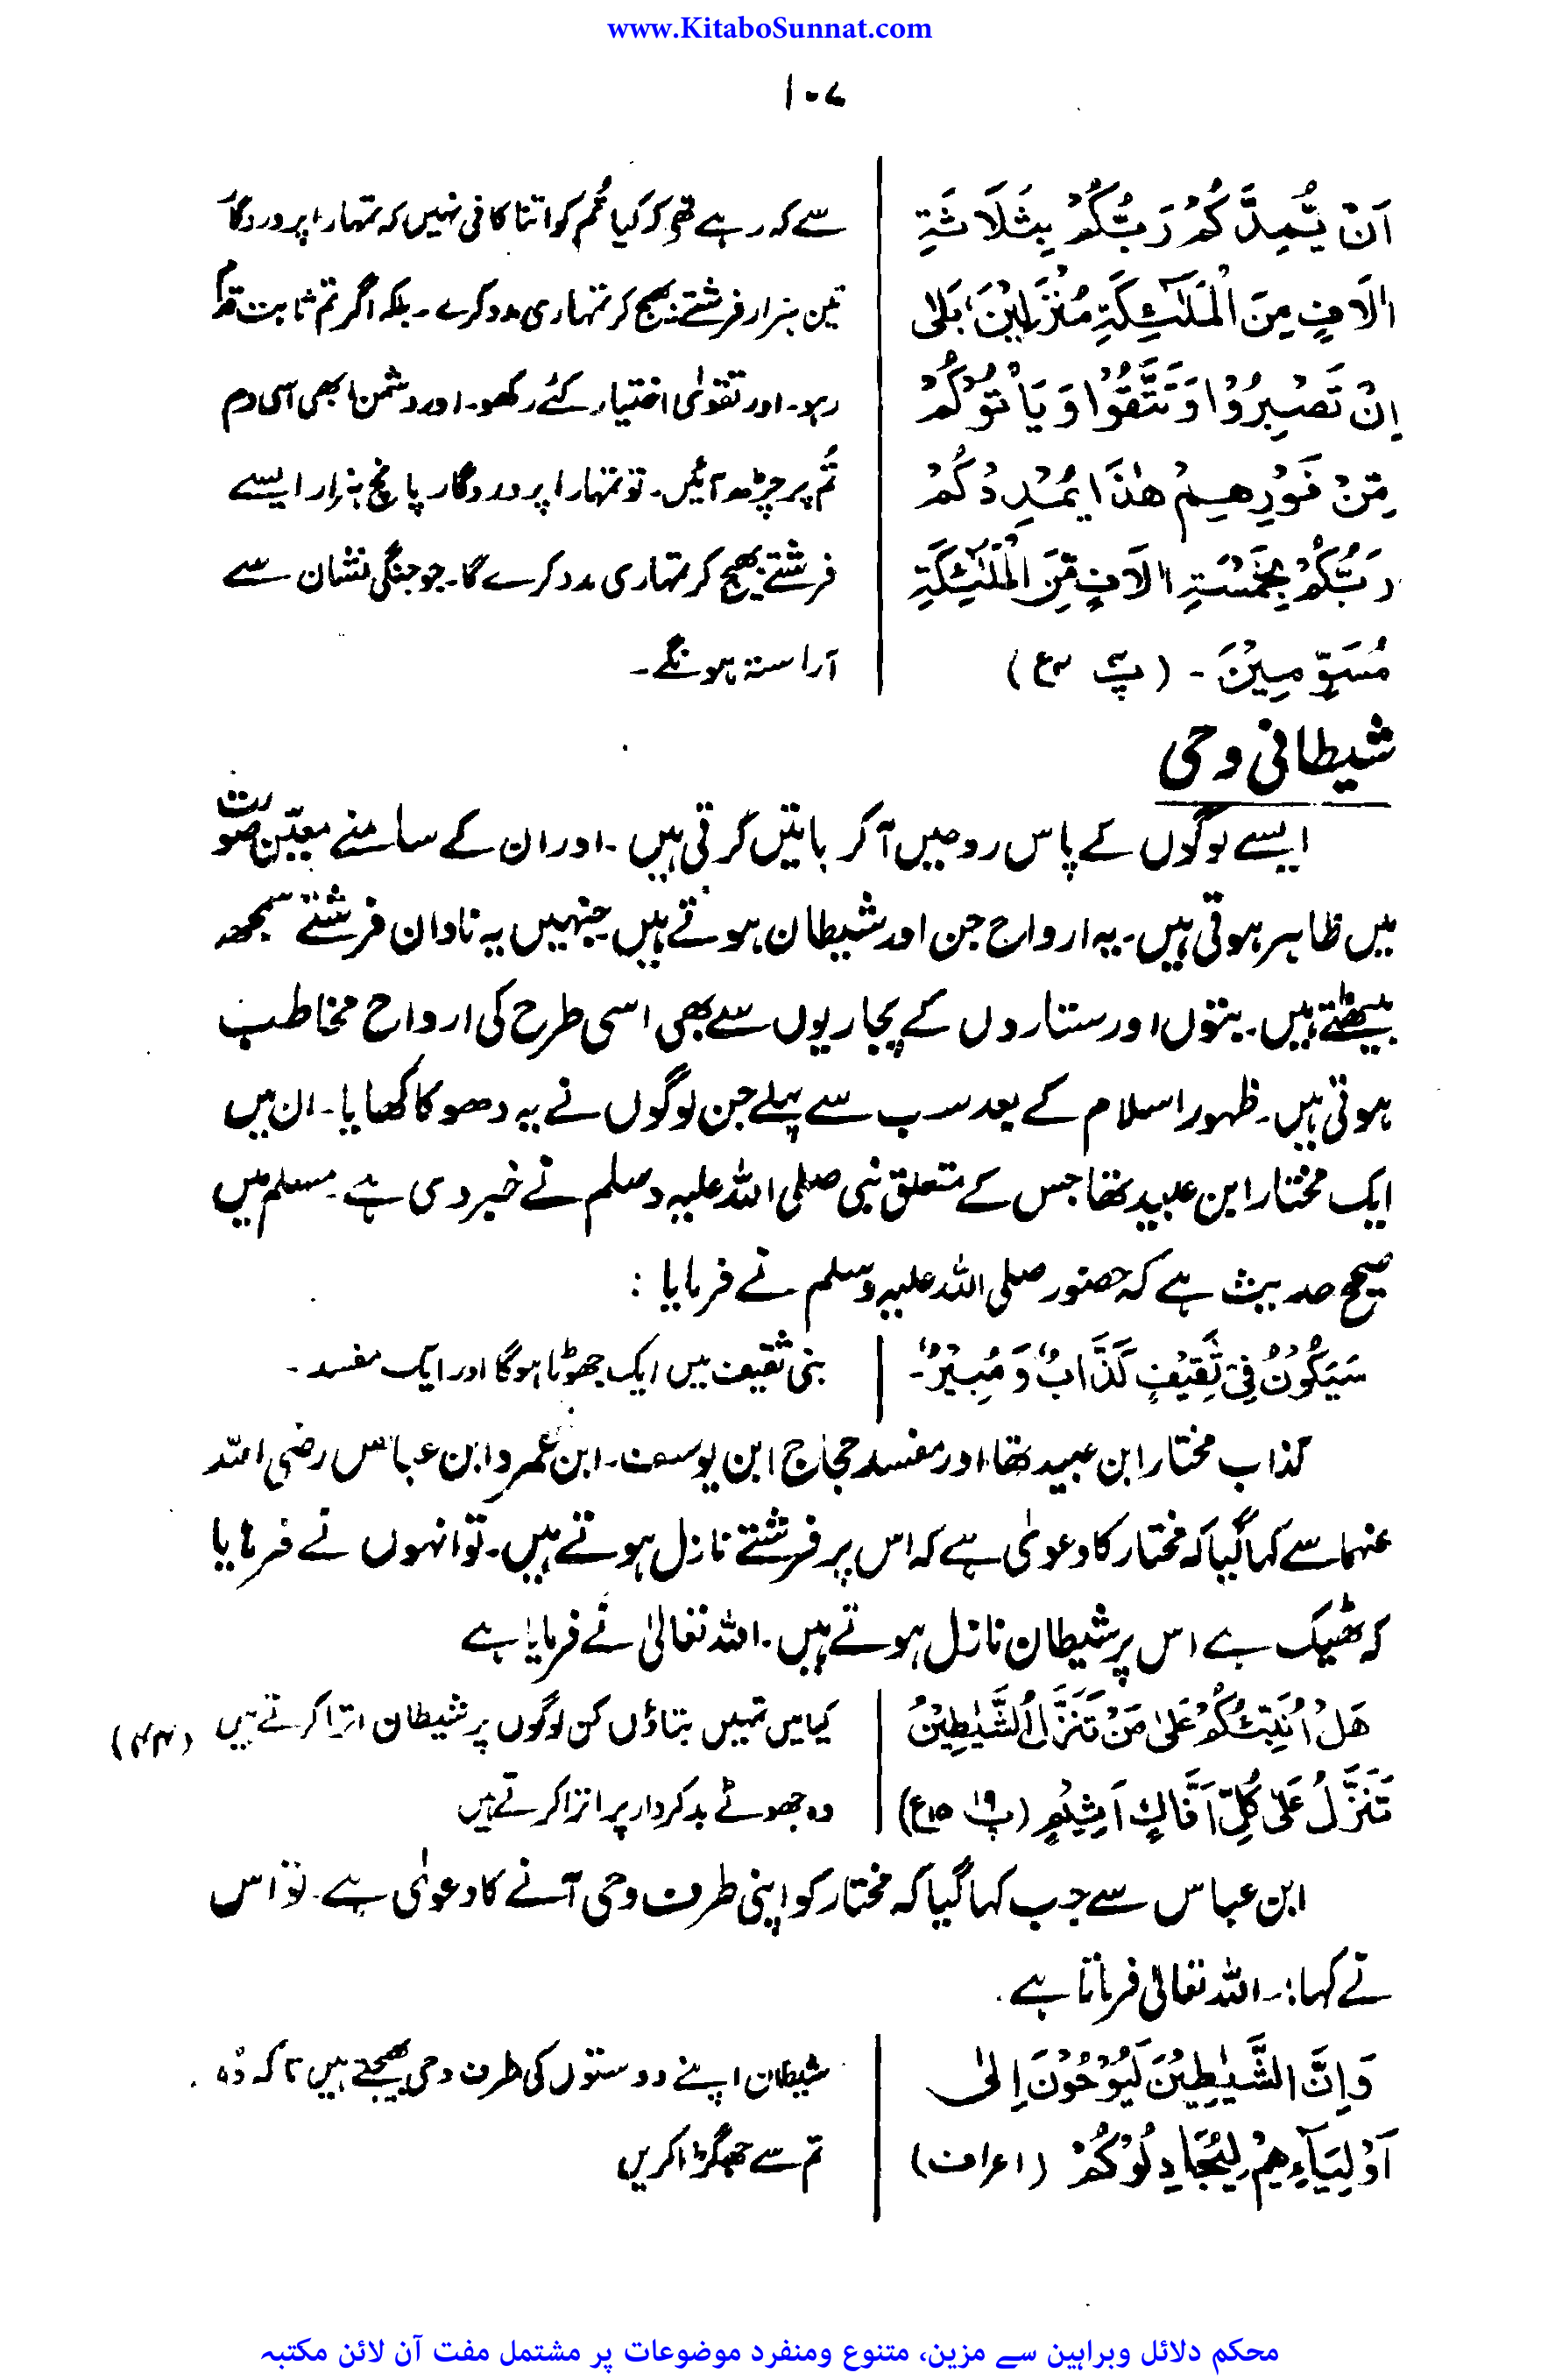 www.KitaboSunnat.com
۱۰۷
اَنْ يُّمِدَّكُمْ رَبُّكُمْ بِثَلَاثَةِ
اٰلَافٍ مِنَ الْمَلٰٓئِكَةِ مُنْزَلِيْنَ، بَلٰى
اِنْ تَصْبِرُوْا وَتَتَّقُوْا وَيَأْتُوْكُمْ
مِّنْ فَوْرِهِمْ هٰذَا يُمْدِدْكُمْ
رَبُّكُمْ بِخَمْسَةِ اٰلَافٍ مِّنَ الْمَلٰٓئِكَةِ
مُسَوِّمِيْنَ - (پ۴ ع۴)
سے کہ رہے تھے کہ کیا تُم کو اتنا کافی نہیں کہ تمہارا پروردگار
تین ہزار فرشتے بھیج کر تمہاری مدد کرے۔ بلکہ اگر تم ثابت قدم
رہو۔ اور تقویٰ اختیار کئے رکھو۔ اور دشمن ابھی اسی دم
تُم پر چڑھ آئیں۔ تو تمہارا پروردگار پانچ ہزار ایسے
فرشتے بھیج کر تمہاری مدد کرے گا۔ جو جنگی نشان سے
آراستہ ہونگے۔
شیطانی وحی
ایسے لوگوں کے پاس روحیں آکر باتیں کرتی ہیں۔ اور ان کے سامنے معیّن صورت
میں ظاہر ہوتی ہیں۔ یہ ارواح جن اور شیطان ہوتے ہیں جنہیں یہ نادان فرشتے سمجھ
بیٹھتے ہیں۔ بتوں اور ستاروں کے پجاریوں سے بھی اسی طرح کی ارواح مخاطب
ہوتی ہیں۔ ظہور اسلام کے بعد سب سے پہلے جن لوگوں نے یہ دھوکا کھایا۔ ان میں
ایک مختار ابن عبید تھا جس کے متعلق نبی صلی اللہ علیہ وسلم نے خبر دی ہے۔ مسلم میں
صحیح حدیث ہے کہ حضور صلی اللہ علیہ وسلم نے فرمایا :
سَيَكُوْنُ فِىْ ثَقِيْفٍ كَذَّابٌ وَ مُبِيْرٌ۔
بنی ثقیف میں ایک جھوٹا ہوگا اور ایک مفسد۔
کذاب مختار ابن عبید تھا اور مفسد حجاج ابن یوسف۔ ابن عمر و ابن عباس رضی اللہ
عنہما سے کہا گیا کہ مختار کا دعویٰ ہے کہ اس پر فرشتے نازل ہوتے ہیں۔ تو انہوں نے فرمایا
کہ ٹھیک ہے اس پر شیطان نازل ہوتے ہیں۔ اللہ تعالیٰ نے فرمایا ہے
هَلْ اُنَبِّئُكُمْ عَلٰى مَنْ تَنَزَّلُ الشَّيٰطِيْنُ
تَنَزَّلُ عَلٰى كُلِّ اَفَّاكٍ اَثِيْمٍ (پ۱۹ ع۱۵)
کیا میں تمہیں بتاؤں کن لوگوں پر شیطان اترا کرتے ہیں (۴۴)
وہ جھوٹے بدکردار پر اترا کرتے ہیں
ابن عباس سے جب کہا گیا کہ مختار کو اپنی طرف وحی آنے کا دعویٰ ہے۔ تو اس
نے کہا:۔ اللہ تعالیٰ فرماتا ہے۔
وَاِنَّ الشَّيٰطِيْنَ لَيُوْحُوْنَ اِلٰى
اَوْلِيَآءِهِمْ لِيُجَادِلُوْكُمْ (اعراف)
شیطان اپنے دوستوں کی طرف وحی بھیجتے ہیں تاکہ وُہ
تم سے جھگڑا کریں
محکم دلائل وبراہین سے مزین، متنوع ومنفرد موضوعات پر مشتمل مفت آن لائن مکتبہ